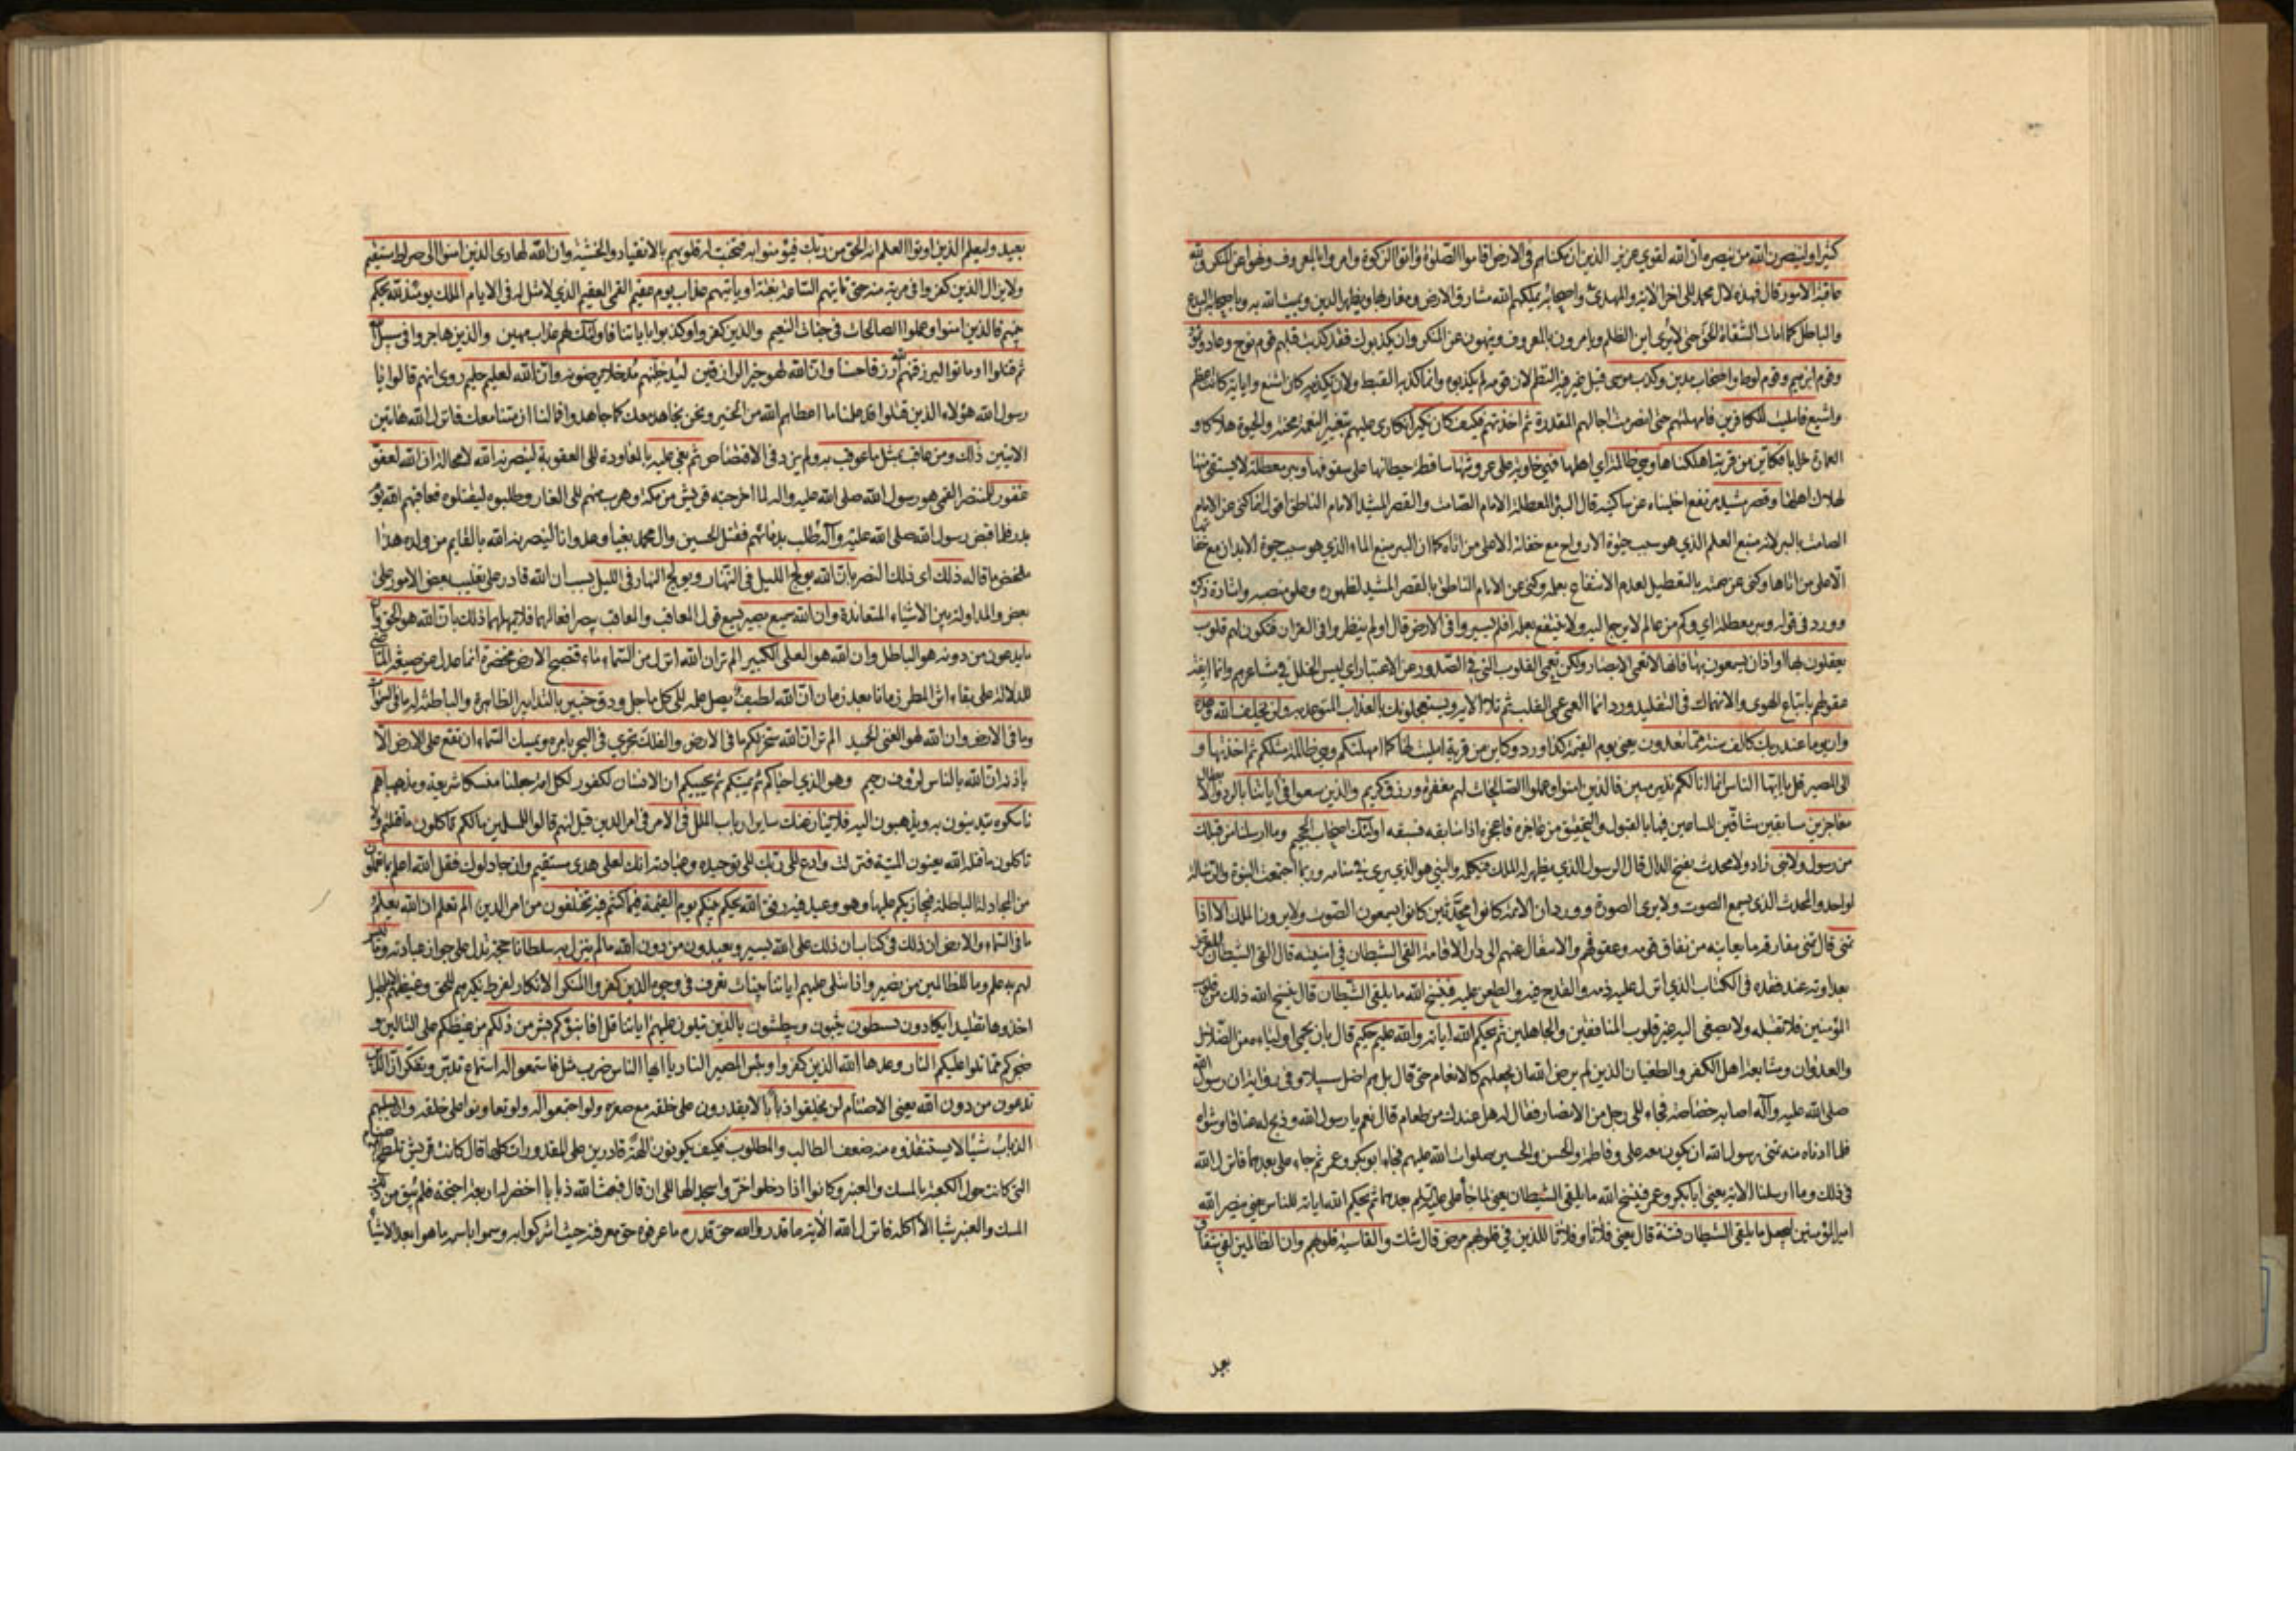 كثيرا ولينصرن الله من ينصره ان الله لقوي عزيز الذين ان مكناهم في الارض اقاموا الصلوة واتوا الزكوة وامروا بالمعروف ونهوا عن المنكر ولله
عاقبة الامور قال فهذه لال محمد الى اخر الاية والمهدي واصحابه يملكهم الله مشارق الارض ومغاربها ويظهر الدين ويميت الله به وباصحابه البدع
والباطل كما امات السفاة الحق حتى لا يرى اين الظلم ويامرون بالمعروف وينهون عن المنكر وان يكذبوك فقد كذبت قبلهم قوم نوح وعاد وثمود
وقوم ابرهيم وقوم لوط واصحاب مدين وكذب موسى قيل غير فيه النظم لان قومه لم يكذبوه وانما كذبه القبط ولان تكذيبه كان اشنع واياته كانت اعظم
واشيع فامليت للكافرين فامهلتهم حتى انصرمت اجالهم المقدرة ثم اخذتهم فكيف كان نكير انكاري عليهم بتغيير النعمة محنة والحيوة هلاكا و
العمارة خرابا فكاين من قرية اهلكناها وهي ظالمة اي اهلها فهي خاوية على عروشها ساقطة حيطانها على سقوفها وبئر معطلة لا يستقى منها
لهلاك اهلها وقصر مشيد مرتفع اخليناه عن ساكنيه قال البئر المعطلة الامام الصامت والقصر المشيد الامام الناطق اقول انما كنى عن الامام
الصامت بالبئر لانه منبع العلم الذي هو سبب حيوة الارواح مع خفائه الا على من اتاه كما ان البئر منبع الماء الذي هو سبب حيوة الابدان مع خفائها
الا على من اتاها وكنى عن صمته بالتعطيل لعدم الانتفاع بعلمه وكنى عن الامام الناطق بالقصر المشيد لظهوره وعلو منصبه واشادة ذكره
وورد في قوله وبئر معطلة اي وكم من عالم لا يرجع اليه ولا ينتفع بعلمه افلم يسيروا في الارض قال اولم ينظروا في القران فتكون لهم قلوب
يعقلون بها او اذان يسمعون بها فانها لا تعمى الابصار ولكن تعمى القلوب التي في الصدور عن الاعتبار اي ليس الخلل في مشاعرهم وانما ايفت
عقولهم باتباع الهوى والانهماك في التقليد ورد انما العمى عمى القلب ثم تلا الاية ويستعجلونك بالعذاب المتوعد به ولن يخلف الله وعده
وان يوما عند ربك كالف سنة مما تعدون يعني يوم القيمة كذا ورد وكاين من قرية امليت لها كما امهلتكم وهي ظالمة مثلكم ثم اخذتها و
الي المصير قل يا ايها الناس انما انا لكم نذير مبين فالذين امنوا وعملوا الصالحات لهم مغفرة ورزق كريم والذين سعوا في اياتنا بالرد والابطال
معاجزين سابقين مشاقين للساعين فيها بالقبول والتحقيق من عاجزه فاعجزه اذا سابقه فسبقه اولئك اصحاب الجحيم وما ارسلنا من قبلك
من رسول ولا نبي زاد ولا محدث بفتح الدال قال الرسول الذي يظهر له الملك فيكلمه والنبي هو الذي يرى في منامه وربما اجتمعت النبوة والرسالة
لواحد والمحدث الذي يسمع الصوت ولا يرى الصورة وورد ان الائمة كانوا محدثين كانوا يسمعون الصوت ولا يرون الملك الا اذا
تمنى قال تمنى مفارقة ما يعاينه من نفاق قومه وعقوقهم والانتقال عنهم الى دار الاقامة القى الشيطان في امنيته قال القى الشيطان
بعداوته عند فقده في الكتاب الذي انزل عليه ذمه والقدح فيه والطعن عليه فينسخ الله ما يلقي الشيطان قال ينسخ الله ذلك من قلوب
المؤمنين فلا تقبله ولا يصغي اليه غير قلوب المنافقين والجاهلين ثم يحكم الله اياته والله عليم حكيم قال بان يحمي اولياءه من الضلال
والعدوان ومشايعة اهل الكفر والطغيان الذين لم يرض الله ان يجعلهم كالانعام حتى قال بل هم اضل سبيلا وفي رواية ان رسول الله
صلى الله عليه وآله اصابه خصاصة فجاء الى رجل من الانصار فقال له هل عندك من طعام قال نعم يا رسول الله وذبح له عناقا وشواه
فلما ادناه منه تمنى رسول الله ان يكون معه علي وفاطمة والحسن والحسين صلوات الله عليهم فجاء ابو بكر وعمر ثم جاء علي بعدهما فانزل الله
في ذلك وما ارسلنا الاية يعني ابا بكر وعمر فينسخ الله ما يلقي الشيطان يعني لما جاء علي عليه السلم بعدهما ثم يحكم الله اياته للناس يعني ينصر الله
امير المؤمنين ليجعل ما يلقي الشيطان فتنة قال يعني فلانا وفلانا للذين في قلوبهم مرض قال شك والقاسية قلوبهم وان الظالمين لفي شقاق
بعيد
بعيد وليعلم الذين اوتوا العلم انه الحق من ربك فيؤمنوا به فتخبت له قلوبهم بالانقياد والخشية وان الله لهادي الذين امنوا الى صراط مستقيم
ولا يزال الذين كفروا في مرية منه حتى تاتيهم الساعة بغتة او ياتيهم عذاب يوم عقيم القمي العقيم الذي لا مثل له في الايام الملك يومئذ لله يحكم
بينهم فالذين امنوا وعملوا الصالحات في جنات النعيم والذين كفروا وكذبوا باياتنا فاولئك لهم عذاب مهين والذين هاجروا في سبيل الله
ثم قتلوا او ماتوا ليرزقنهم الله رزقا حسنا وان الله لهو خير الرازقين ليدخلنهم مدخلا يرضونه وان الله لعليم حليم روي انهم قالوا يا
رسول الله هؤلاء الذين قتلوا قد علمنا ما اعطاهم الله من الخير ونحن نجاهد معك كما جاهدوا فما لنا ان متنا معك فانزل الله هاتين
الايتين ذلك ومن عاقب بمثل ما عوقب به ولم يزد في الاقتصاص ثم بغي عليه بالمعاودة الى العقوبة لينصرنه الله لا محالة ان الله لعفو
غفور للمنتصر القمي هو رسول الله صلى الله عليه واله لما اخرجته قريش من مكة وهرب منهم الى الغار وطلبوه ليقتلوه فعاقبهم الله يوم
بدر فلما قبض رسول الله صلى الله عليه وآله طلب بدمائهم فقتل الحسين وال محمد بغيا وعدوانا لينصرنه الله بالقايم من ولده هذا
ملخص ما قاله ذلك اي ذلك النصر بان الله يولج الليل في النهار ويولج النهار في الليل بسبب ان الله قادر على تغليب بعض الامور على
بعض والمداولة بين الاشياء المتعاندة وان الله سميع بصير يسمع قول المعاقب والمعاقب يبصر افعالهما فلا يهملهما ذلك بان الله هو الحق وان
ما يدعون من دونه هو الباطل وان الله هو العلي الكبير الم تر ان الله انزل من السماء ماء فتصبح الارض مخضرة انما عدل عن صيغة الماضي
للدلالة على بقاء اثر المطر زمانا بعد زمان ان الله لطيف يصل علمه الى كل ما جل ودق خبير بالتدابير الظاهرة والباطنة له ما في السموات
وما في الارض وان الله لهو الغني الحميد الم تر ان الله سخر لكم ما في الارض والفلك تجري في البحر بامره ويمسك السماء ان تقع على الارض الا
باذنه ان الله بالناس لرؤف رحيم وهو الذي احياكم ثم يميتكم ثم يحييكم ان الانسان لكفور لكل امة جعلنا منسكا شريعة ومذهبا هم
ناسكوه يتدينون به ويذهبون اليه فلا ينازعنك ساير ارباب الملل في الامر في امر الدين قيل انهم قالوا للمسلمين ما لكم تاكلون ما قتلتم ولا
تاكلون ما قتله الله يعنون الميتة فنزلت وادع الى ربك الى توحيده وعبادته انك لعلى هدى مستقيم وان جادلوك فقل الله اعلم بما تعملون
من المجادلة الباطلة فيجازيكم عليها وهو وعيد فيه رفق الله يحكم بينكم يوم القيمة فيما كنتم فيه تختلفون من امر الدين الم تعلم ان الله يعلم
ما في السماء والارض ان ذلك في كتاب ان ذلك على الله يسير ويعبدون من دون الله ما لم ينزل به سلطانا حجة تدل على جواز عبادته وما ليس
لهم به علم وما للظالمين من نصير واذا تتلى عليهم اياتنا بينات تعرف في وجوه الذين كفروا المنكر الانكار لفرط نكيرهم للحق وغيظهم لاباطيل
اخذوها تقليدا يكادون يسطون يثبون ويبطشون بالذين يتلون عليهم اياتنا قل افانبئكم بشر من ذلكم من غيظكم على التالين و
ضجركم مما تلوا عليكم النار وعدها الله الذين كفروا وبئس المصير النار يا ايها الناس ضرب مثل فاستمعوا له استماع تدبر وتفكر ان الذين
تدعون من دون الله يعني الاصنام لن يخلقوا ذبابا لا يقدرون على خلقه مع صغره ولو اجتمعوا له ولو تعاونوا على خلقه وان يسلبهم
الذباب شيئا لا يستنقذوه منه ضعف الطالب والمطلوب فكيف يكونون الهة قادرين على المقدورات كلها قال كانت قريش تلطخ الاصنام
التي كانت حول الكعبة بالمسك والعنبر وكانوا اذا دخلوا خروا سجدا لها الى ان قال فبعث الله ذبابا اخضر له اربعة اجنحة فلم يبق من ذلك
المسك والعنبر شيئا الا اكله فانزل الله الاية ما قدروا الله حق قدره ما عرفوه حق معرفته حيث اشركوا به وسموا باسمه ما هو ابعد الاشياء